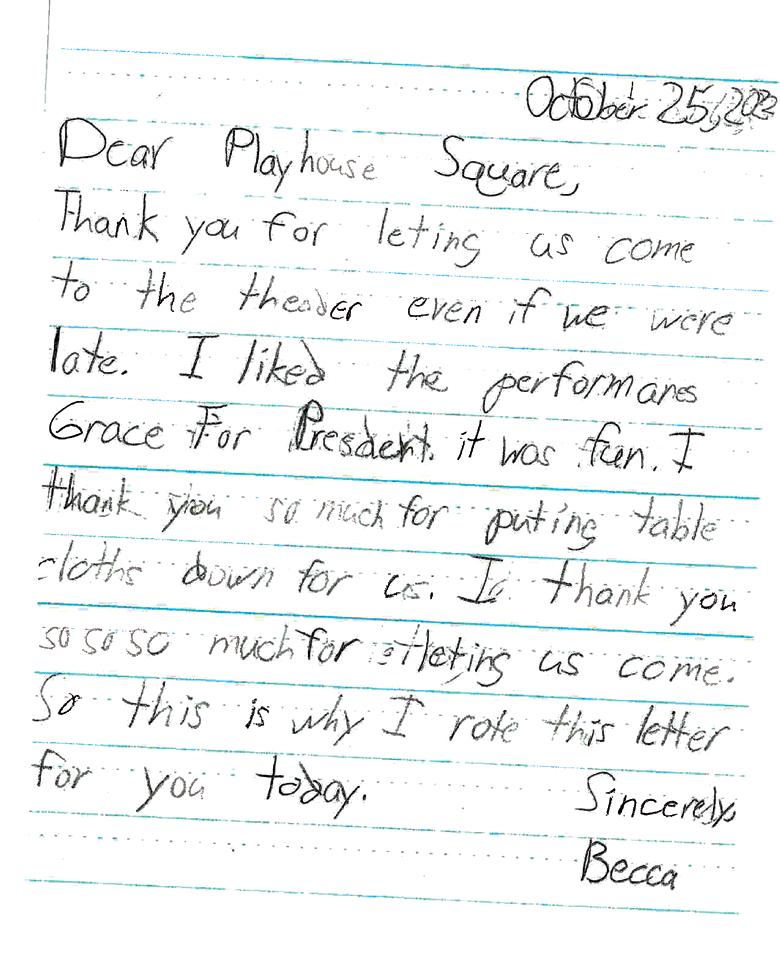 October 25,
Dear Playhouse Square,
Thank you for leting us come
to the theader even if we were
late. I liked the performanes
Grace For Presdent. it was fun. I
thank you so much for puting table
cloths down for us. I thank you
so so so much for leting us come.
So this is why I rote this letter
for you today. Sincerely,
Becca